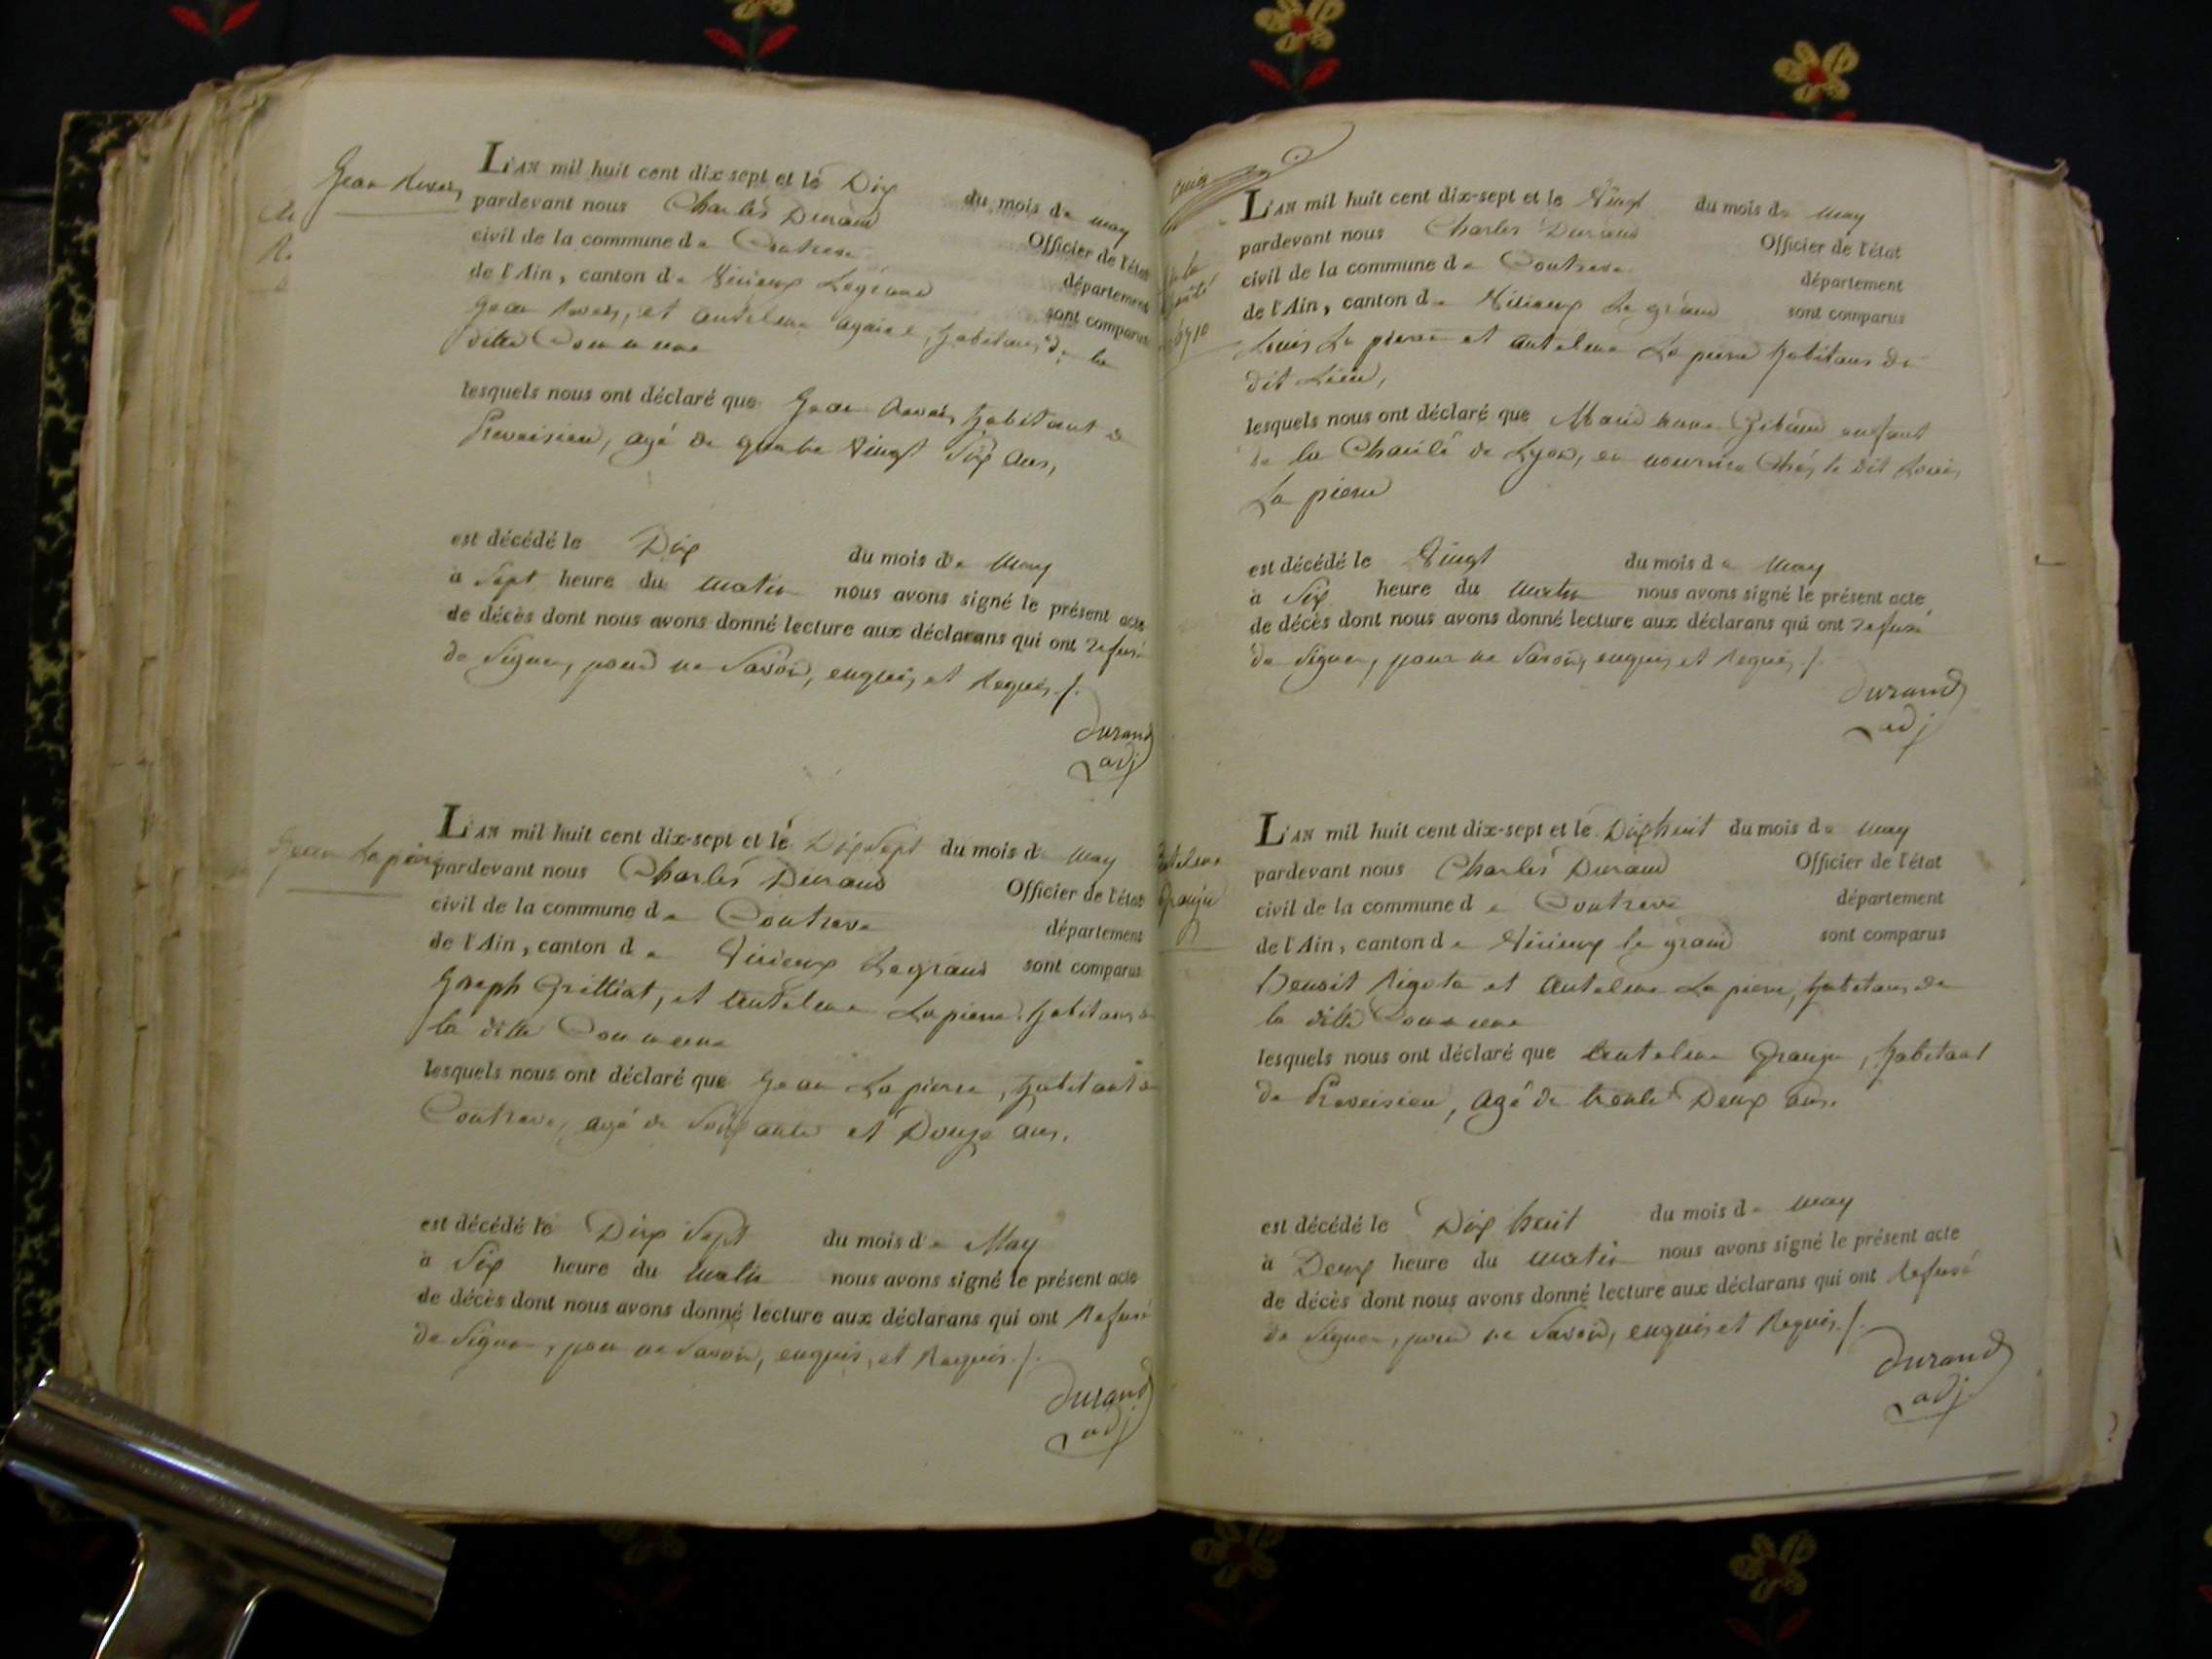 L'AN mil huit cent dix-sept et le Dix du mois de may
pardevant nous Charles Durand Officier de l'état
civil de la commune de Contreve département
de l'Ain, canton de Virieux Legrand sont comparus
Jean et antelme habitans de la
ditte Commune
lesquels nous ont déclaré que Jean habitant de
Preveisieu, agé de quatre vingt Six ans,
est décédé le Dix du mois de May
à Sept heure du matin nous avons signé le présent acte
de décès dont nous avons donné lecture aux déclarans qui ont refusé
de Signer, pour ne Savoir, enquis et Requis./.
Durand
adj
Jean Lapierre
L'AN mil huit cent dix-sept et le Dix Sept du mois de May
pardevant nous Charles Durand Officier de l'état
civil de la commune de Contreve département
de l'Ain, canton de Virieux Legrand sont comparus
Joseph Grilliat, et Antelme Lapierre habitans de
la ditte Commune
lesquels nous ont déclaré que Jean Lapierre, habitant de
Contreve, agé de Soixante et Douze ans,
est décédé le Dix Sept du mois de May
à Six heure du matin nous avons signé le présent acte
de décès dont nous avons donné lecture aux déclarans qui ont Refusé
de Signer, pour ne Savoir, enquis, et Requis./.
Durand
adj
L'AN mil huit cent dix-sept et le Vingt du mois de May
pardevant nous Charles Durand Officier de l'état
civil de la commune de Contreve département
de l'Ain, canton de Virieux Le grand sont comparus
Louis La pierre et antelme La pierre habitans du
dit Lieu,
lesquels nous ont déclaré que Marie anne enfant
de la Charité de Lyon, en nourrice Chés le dit Louis
La pierre
est décédé le Vingt du mois de May
à Six heure du matin nous avons signé le présent acte
de décès dont nous avons donné lecture aux déclarans qui ont refusé
de Signer, pour ne Savoir, enquis et Requis./.
Durand
adj
antelme
Granju
L'AN mil huit cent dix-sept et le Dix huit du mois de May
pardevant nous Charles Durand Officier de l'état
civil de la commune de Contreve département
de l'Ain, canton de Virieux le grand sont comparus
Benoit Rigota et Antelme La pierre, habitans de
la ditte Commune
lesquels nous ont déclaré que Antelme Granju, habitant
de Preveisieu, agé de trente Deux ans.
est décédé le Dix huit du mois de May
à Deux heure du matin nous avons signé le présent acte
de décès dont nous avons donné lecture aux déclarans qui ont Refusé
de Signer, pour ne Savoir, enquis et Requis./.
Durand
adj